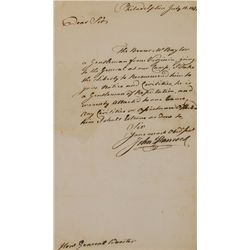 Philadelphia July 10. 17
Dear Sir,
The Bearer Mr Baylor
a Gentleman from Virginia going
to the General at our Camp, I take
the Liberty to Recommend him to
your Notice and Civilities, he is
a Gentleman of Reputation and
warmly Attached to our Cause,
Any Civilities or
him I shall Esteem as done to
Sir
Your most Obedt Servt
John Hancock
Honl General